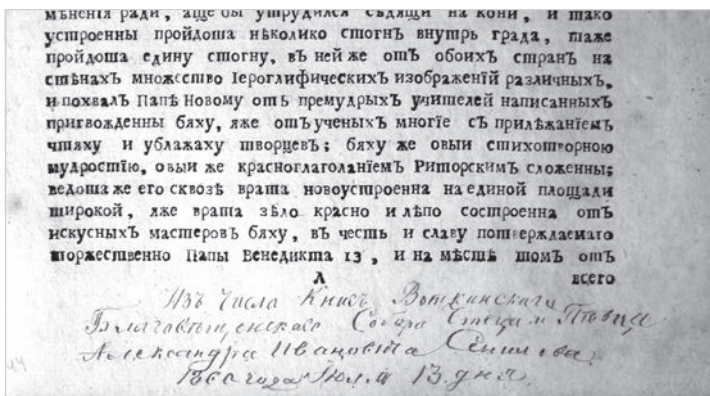 мѣненїя ради, аще бы утрудился сѣдящи на кони, и тако
устроенны пройдоша нѣколико стогнъ внутрь града, таже
пройдоша едину стогну, въ ней же отъ обоихъ странъ на
стѣнахъ множество Іероглифическихъ изображенїй различныхъ,
и похвалъ Папѣ Новому отъ премудрыхъ учителей написанныхъ
пригвожденны бяху, яже отъ ученыхъ многїе съ прилѣжанїемъ
чтяху и ублажаху творцевъ; бяху же овыи стихотворною
мудростїю, овыи же красноглаголанїемъ Риторскимъ сложенны;
ведоша же его сквозѣ врата новоустроенна на единой площади
широкой, яже врата зѣло красно и лѣпо состроенна отъ
искусныхъ мастеровъ бяху, въ честь и славу потверждаемаго
торжественно Папы Венедикта 13, и на мѣстѣ томъ отъ
Л всего
Изъ Числа Книгъ Воткинскаго
Благовѣщенскаго Собора
Александра Ивановича
1860 года Іюля 13 дня.